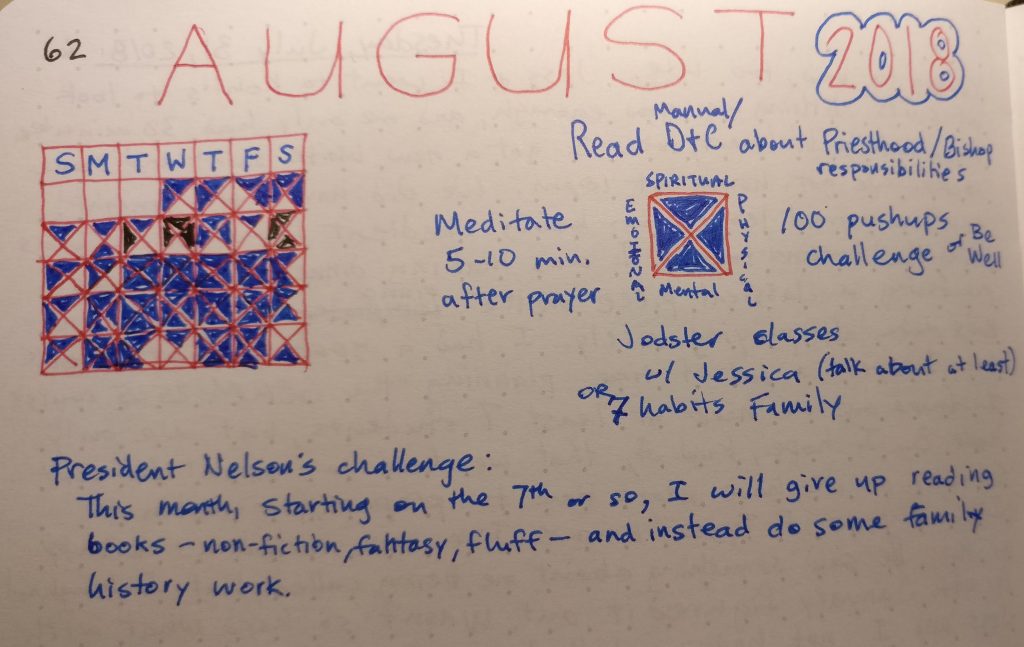 62
AUGUST 2018
S M T W T F S
Manual/
Read D+C about Priesthood/Bishop
responsibilities
SPIRITUAL
EMOTIONAL
PHYSICAL
Mental
Meditate
5-10 min.
after prayer
100 pushups
challenge or Be
Well
Jodster classes
w/ Jessica (talk about at least)
OR, 7 habits Family
President Nelson's challenge:
This month, starting on the 7th or so, I will give up reading
books - non-fiction, fantasy, fluff - and instead do some family
history work.